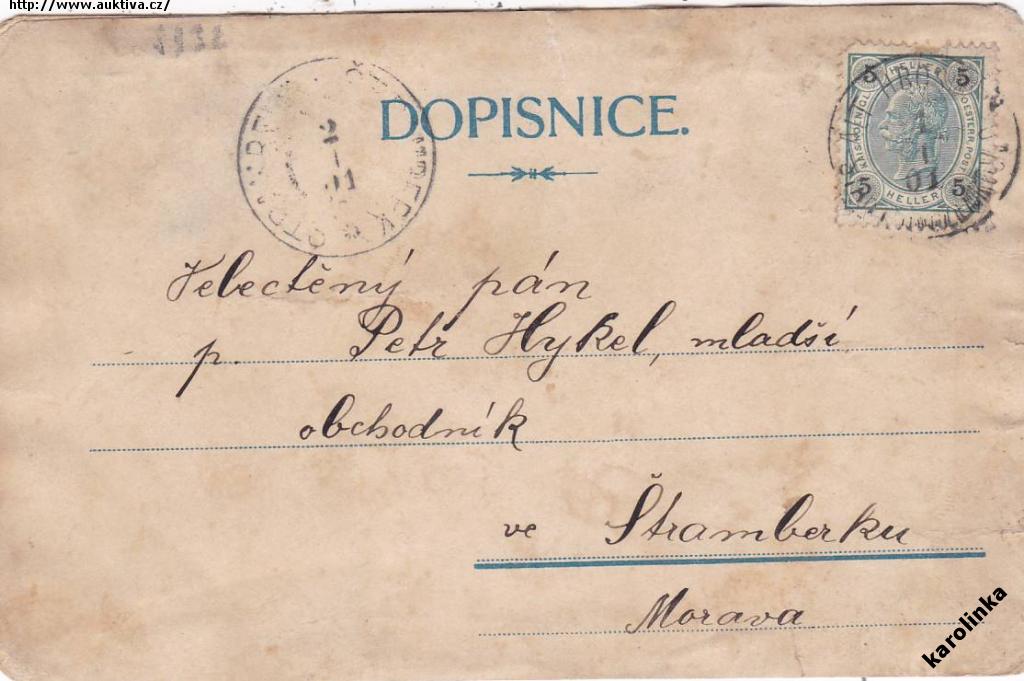 http://www.auktiva.cz/
DOPISNICE.
2
1
01
5 HELLER 5
5 HELLER 5
1
1
01
Velectěný pán
p. Petr Hykel, mladší
obchodník
ve Štramberku
Morava
karolinka